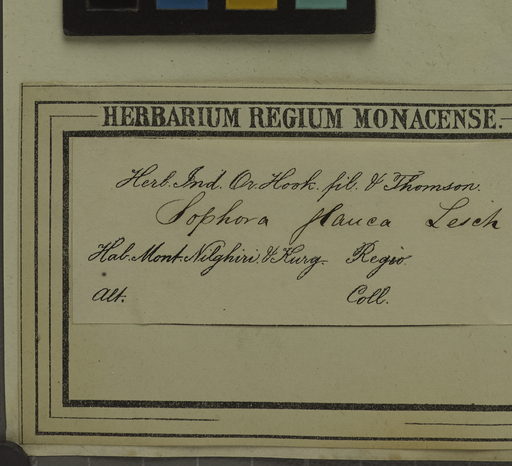 HERBARIUM REGIUM MONACENSE.
Herb. Ind. Or. Hook. fil. & Thomson.
Sophora glauca Lesch
Hab. Mont. Nilghiri & Kurg. Regio
Alt. Coll.